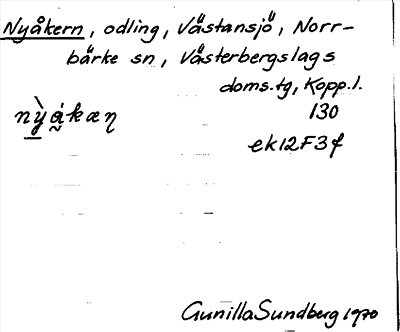 Nyåkern, odling, Västansjö, Norr-
bärke sn, Västerbergslags
doms.tg, Kopp.l.
130
ek12F3f
Gunilla Sundberg 1970